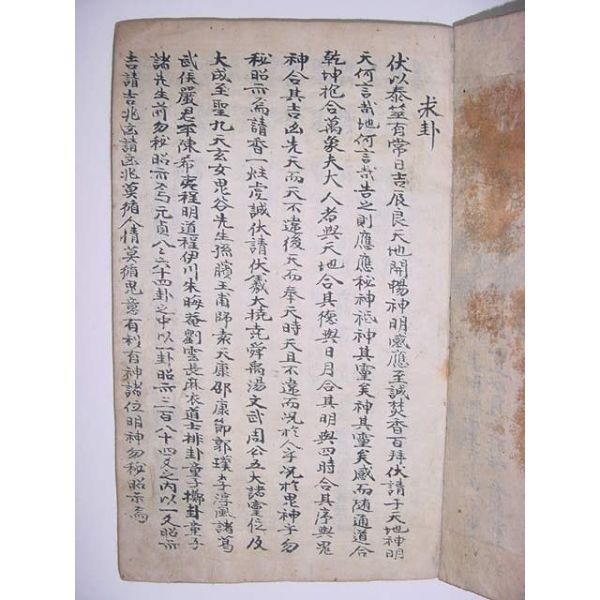 求卦
伏以泰筮有常日吉辰良天地開暢神明感應至誠焚香百拜伏請于天地神明
天何言哉地何言哉告之則應應秘神祗神其靈矣神其靈矣感而随通道合
乾坤抱合萬象夫大人者與天地合其德與日月合其明與四時合其序與鬼
神合其吉凶先天而天不違後天而奉天時天且不違而况於人乎况於鬼神乎勿
秘昭示爲請香一炷虔誠伏請伏羲大撓堯舜禹湯文武周公五大諸靈位及
大成至聖九天玄女鬼谷先生孫臏王甫師素天康邵康節郭璞李淳風諸葛
武侯嚴君平陳希夷程明道程伊川朱晦菴劉雲長麻衣道士排卦童子擲卦童子
諸先生前勿秘昭示焉元貞八八六十四卦之中以一卦昭示三百八十四爻之内以一爻昭示
吉請吉兆凶請凶兆莫循人情莫循鬼意有利有神諸位明神勿秘昭示焉